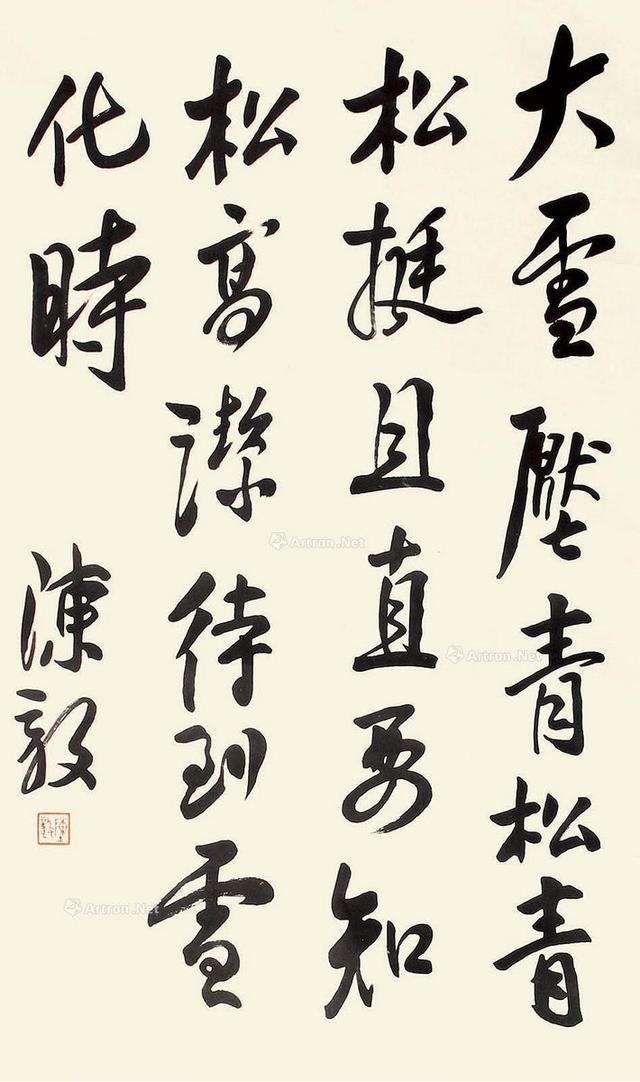 大雪壓青松青
松挺且直要知
松高潔待到雪
化時
陳毅
Artron.Net
Artron.Net
Artron.Net